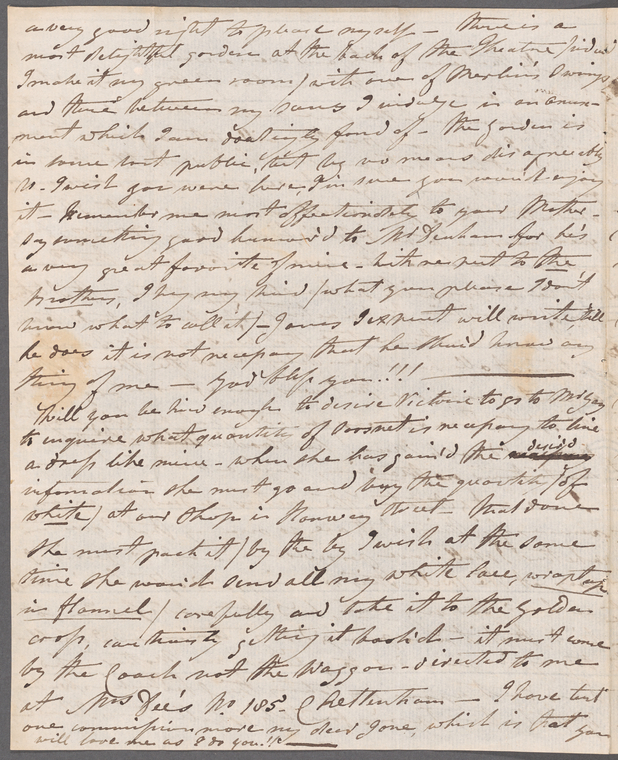 a very good right to please myself - there is a
most delightful garden at the back of the Theatre (indeed
I make it my green room) with one of Merlin's Swings
and there between my scenes I indulge in an amuse-
ment which I am doatingly fond of - the Garden is
in some sort public, but by no means disagreeably
so - I wish you were here I'm sure you would enjoy
it - Remember me most affectionately to your Mother -
say something good humour'd to Mr Denham for he's
a very great favorite of mine - with respect to the
Brothers, I beg my kind (what you please I don't
know what to call it) - James I expect will write till
he does it is not necessary that he shou'd know any
thing of me — God bless you..!!!
Will you be kind enough to desire Victoire to go to
to enquire what quantity of is necessary to line
a dress like mine - when she has gain'd the desir'd
information she must go and buy the quantity (of
white) at our Shop in Street - that done
she must pack it (by the by I wish at the same
time she would send all my white lace, wrapt up
in flannel) carefully and take it to the Golden
cross, cautiously getting it book'd - it must come
by the Coach not the Waggon - directed to me
at Mrs No. 185 - Cheltenham — I have but
one commission more my dear Jane, which is that you
will love me as I do you.!!—